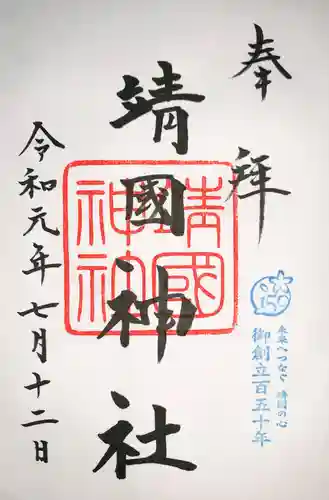 奉拝
未来へつなぐ 靖國の心
150
御創立百五十年
靖國神社
靖國神社
令和元年七月十二日